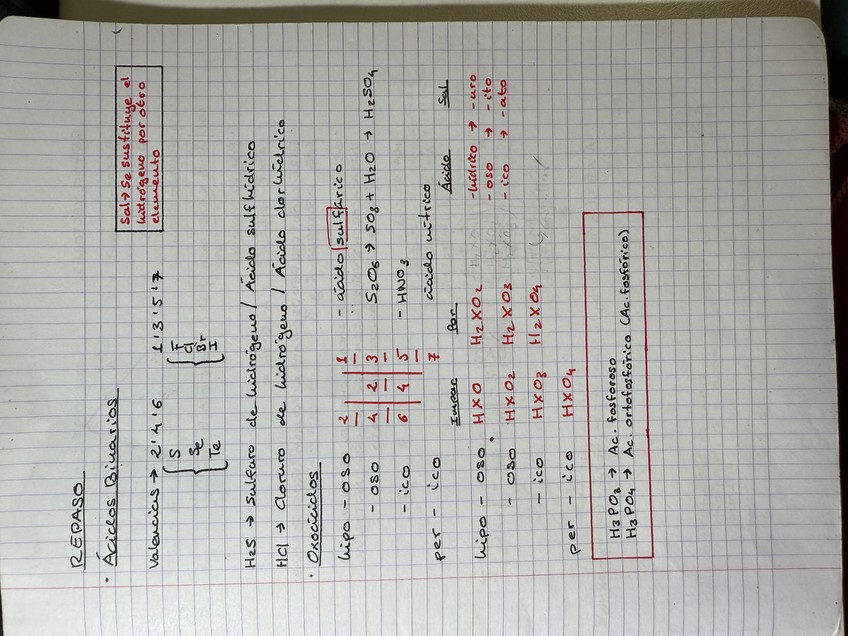 REPASO
Sal → Se sustituye el
hidrógeno por otro
elemento
· Ácidos Binarios
Valencias → 2'4'6 1'3'5'7
S
Se
Te
F
Cl
Br
I
H2S → Sulfuro de hidrógeno / Ácido sulfhídrico
HCl → Cloruro de hidrógeno / Ácido clorhídrico
· Oxoácidos
hipo - oso 2 1 - ácido sulfúrico
- oso 4 2 3 S2O6 → SO3 + H2O → H2SO4
- ico 6 4 5 - HNO3
per - ico 7 ácido nítrico
Impar Par Ácido Sal
hipo - oso HXO H2XO2 -hídrico → -uro
- oso HXO2 H2XO3 -oso → -ito
- ico HXO3 H2XO4 -ico → -ato
per - ico HXO4
H3PO3 → Ac. fosforoso
H3PO4 → Ac. ortofosfórico (Ac. fosfórico)